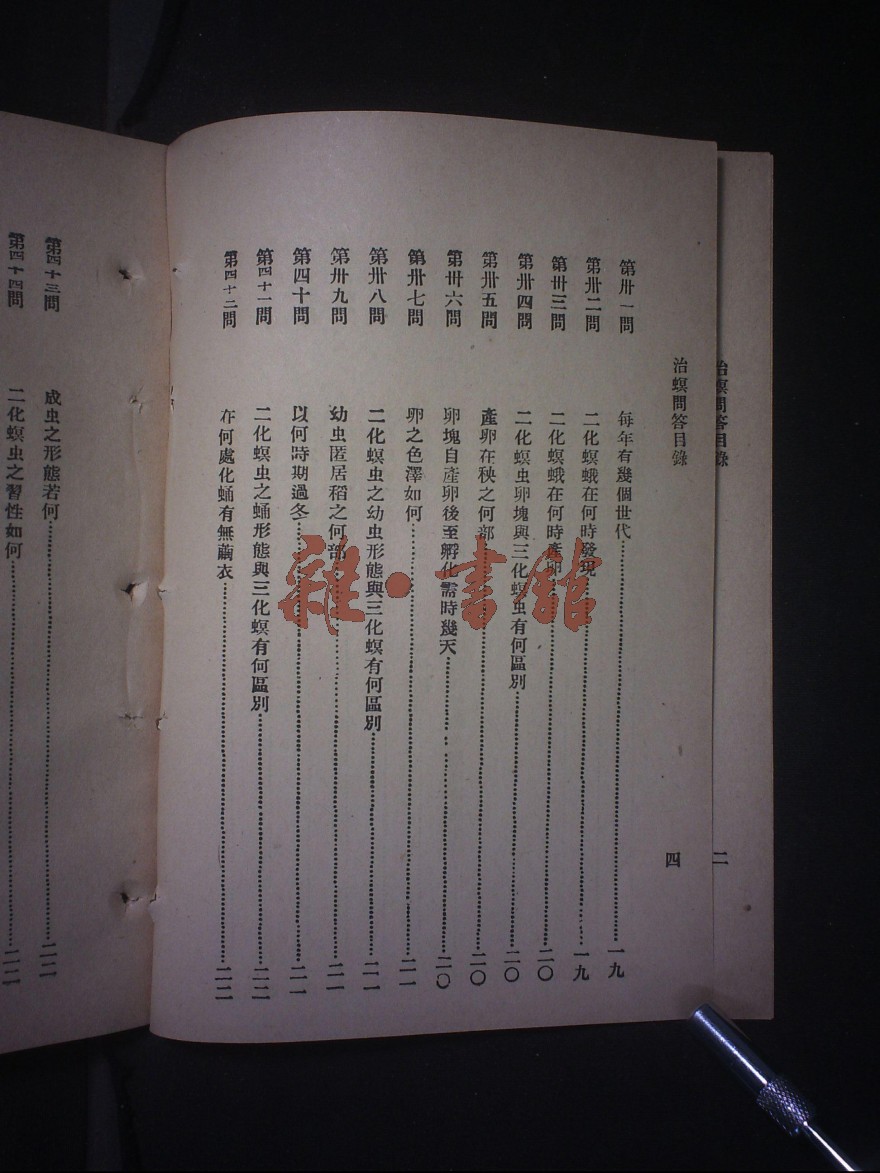 治螟問答目錄
四
第卅一問 每年有幾個世代 一九
第卅二問 二化螟蛾在何時發現 一九
第卅三問 二化螟蛾在何時產卵 二〇
第卅四問 二化螟虫卵塊與三化螟虫有何區別 二〇
第卅五問 產卵在秧之何部 二〇
第卅六問 卵塊自產卵後至孵化需時幾天 二〇
第卅七問 卵之色澤如何 二一
第卅八問 二化螟虫之幼虫形態與三化螟有何區別 二一
第卅九問 幼虫匿居稻之何部 二一
第四十問 以何時期過冬 二一
第四十一問 二化螟虫之蛹形態與三化螟有何區別 二二
第四十二問 在何處化蛹有無繭衣 二二
第四十三問 成虫之形態若何 二二
第四十四問 二化螟虫之習性如何 二二
治螟問答目錄
二
雜·書館